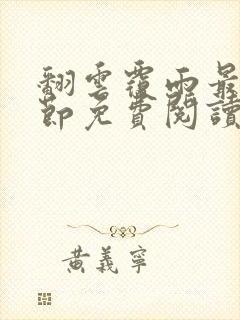 翻雲覆雨最
節免費閱讀
黃義寧